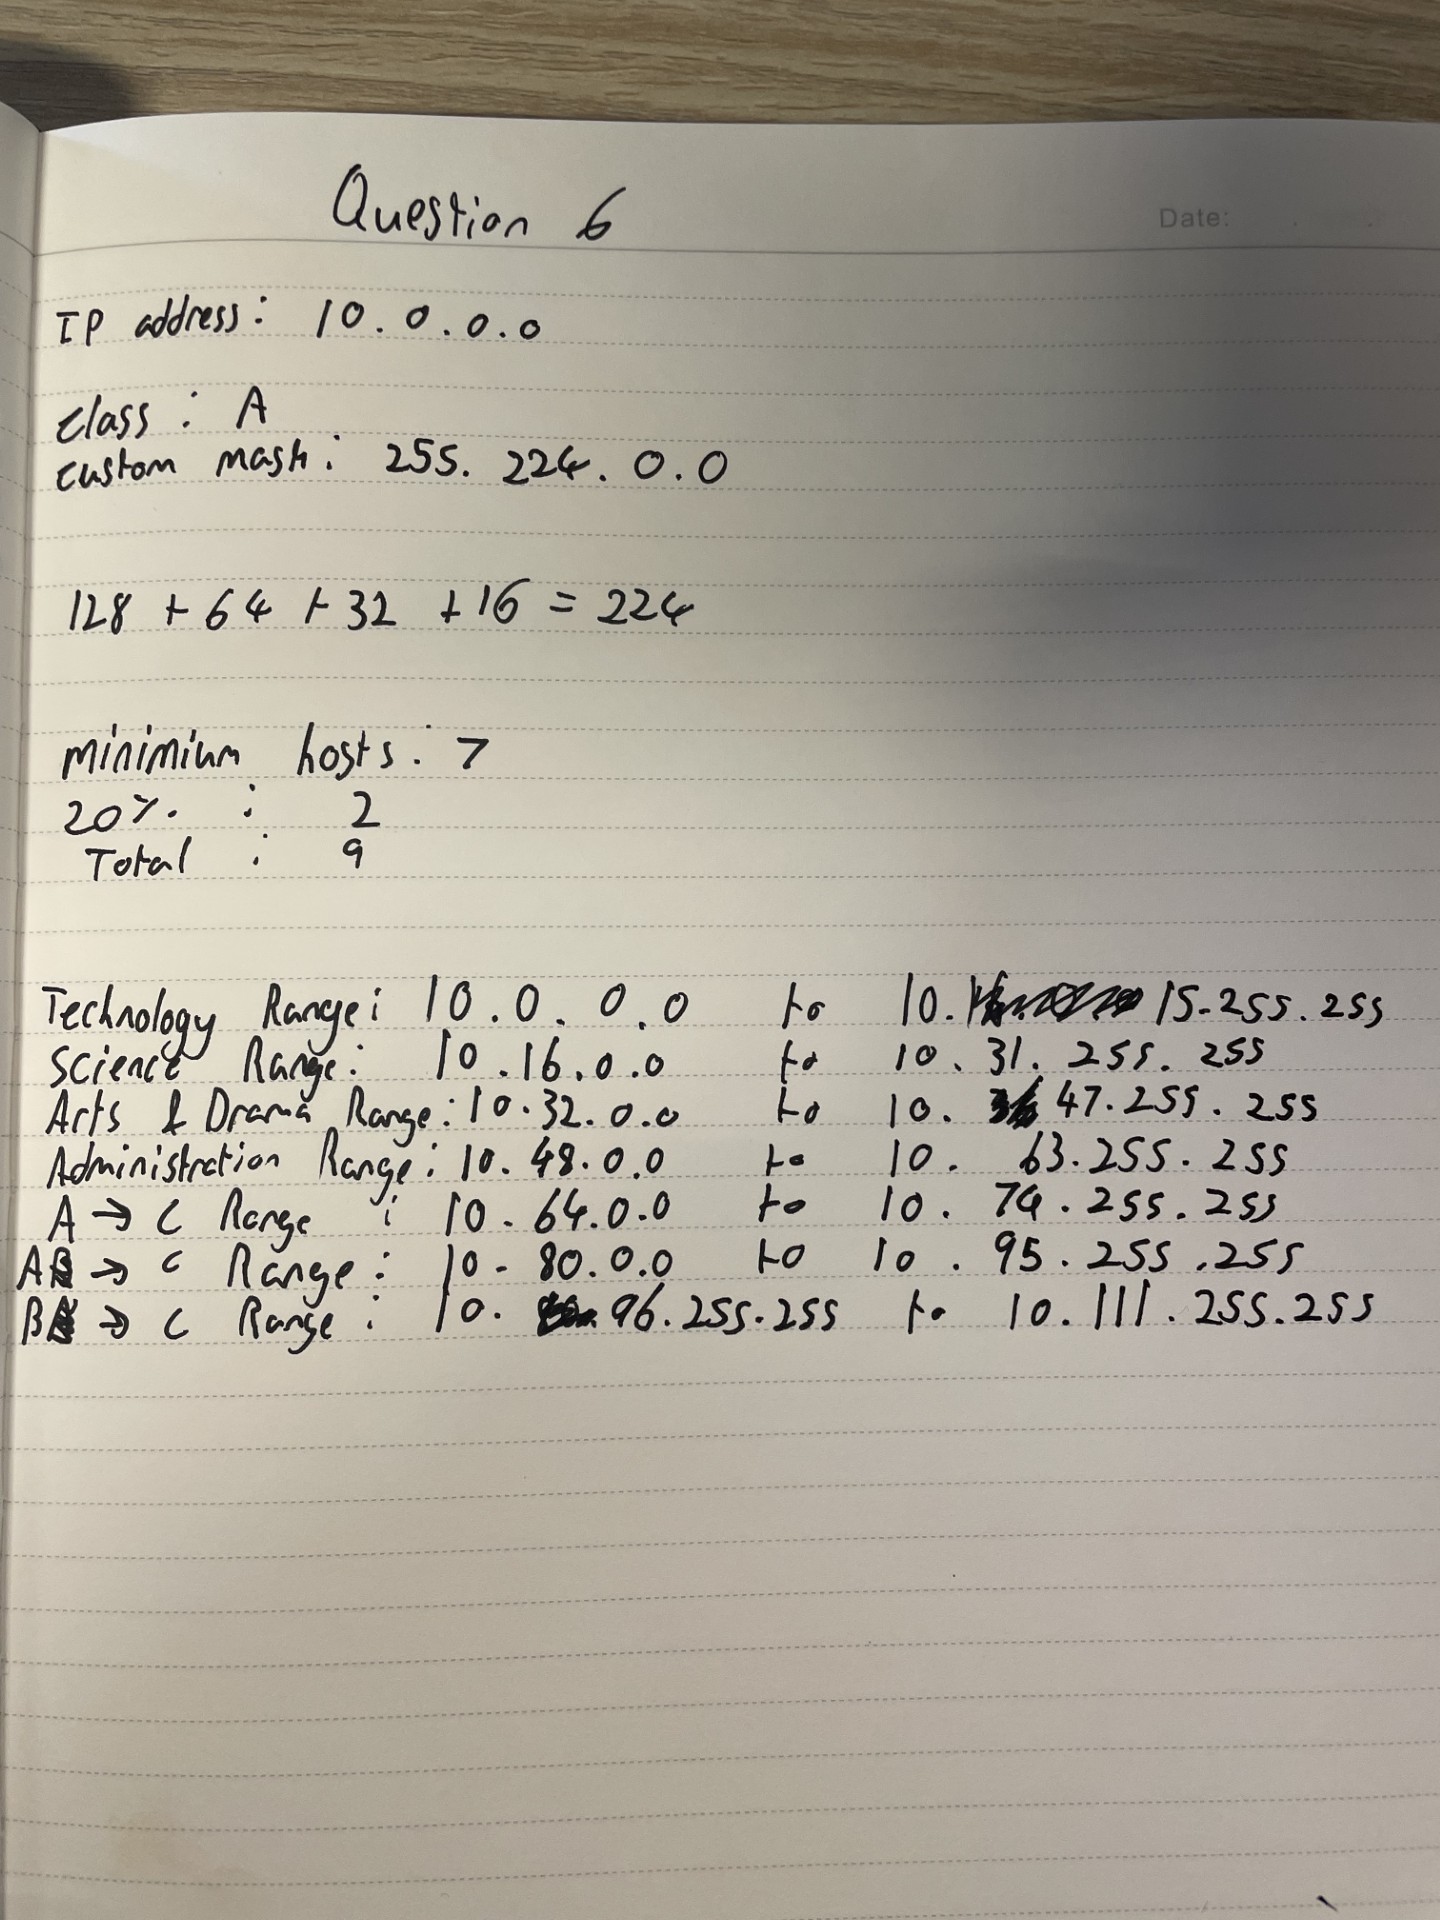 Question 6
Date:
IP address: 10.0.0.0
class: A
custom mask: 255.224.0.0
128 + 64 + 32 + 16 = 224
minimium hosts: 7
20% : 2
Total : 9
Technology Range: 10.0.0.0 to 10.15.255.255
Science Range: 10.16.0.0 to 10.31.255.255
Arts & Drama Range: 10.32.0.0 to 10.47.255.255
Administration Range: 10.48.0.0 to 10.63.255.255
A → C Range : 10.64.0.0 to 10.74.255.255
AB → C Range : 10.80.0.0 to 10.95.255.255
B → C Range : 10.96.255.255 to 10.111.255.255